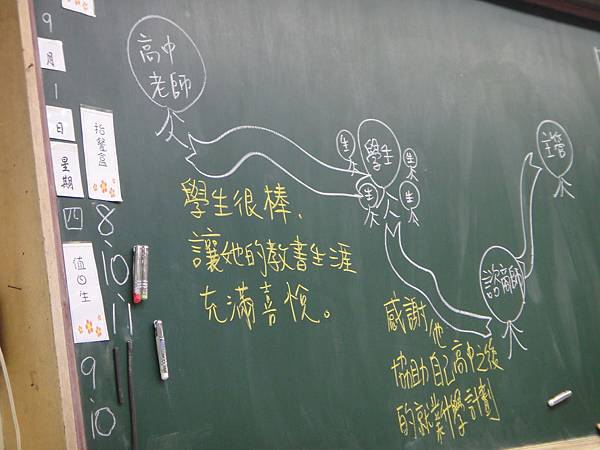 9
月
1
日
星期
四
抬餐盒
8
10
11
值日生
9
10
高中
老師
學生
生
生
生
生
主管
諮商師
學生很棒、
讓她的教書生涯
充滿喜悅。
感謝他
協助自己高中之後
的就業升學計劃